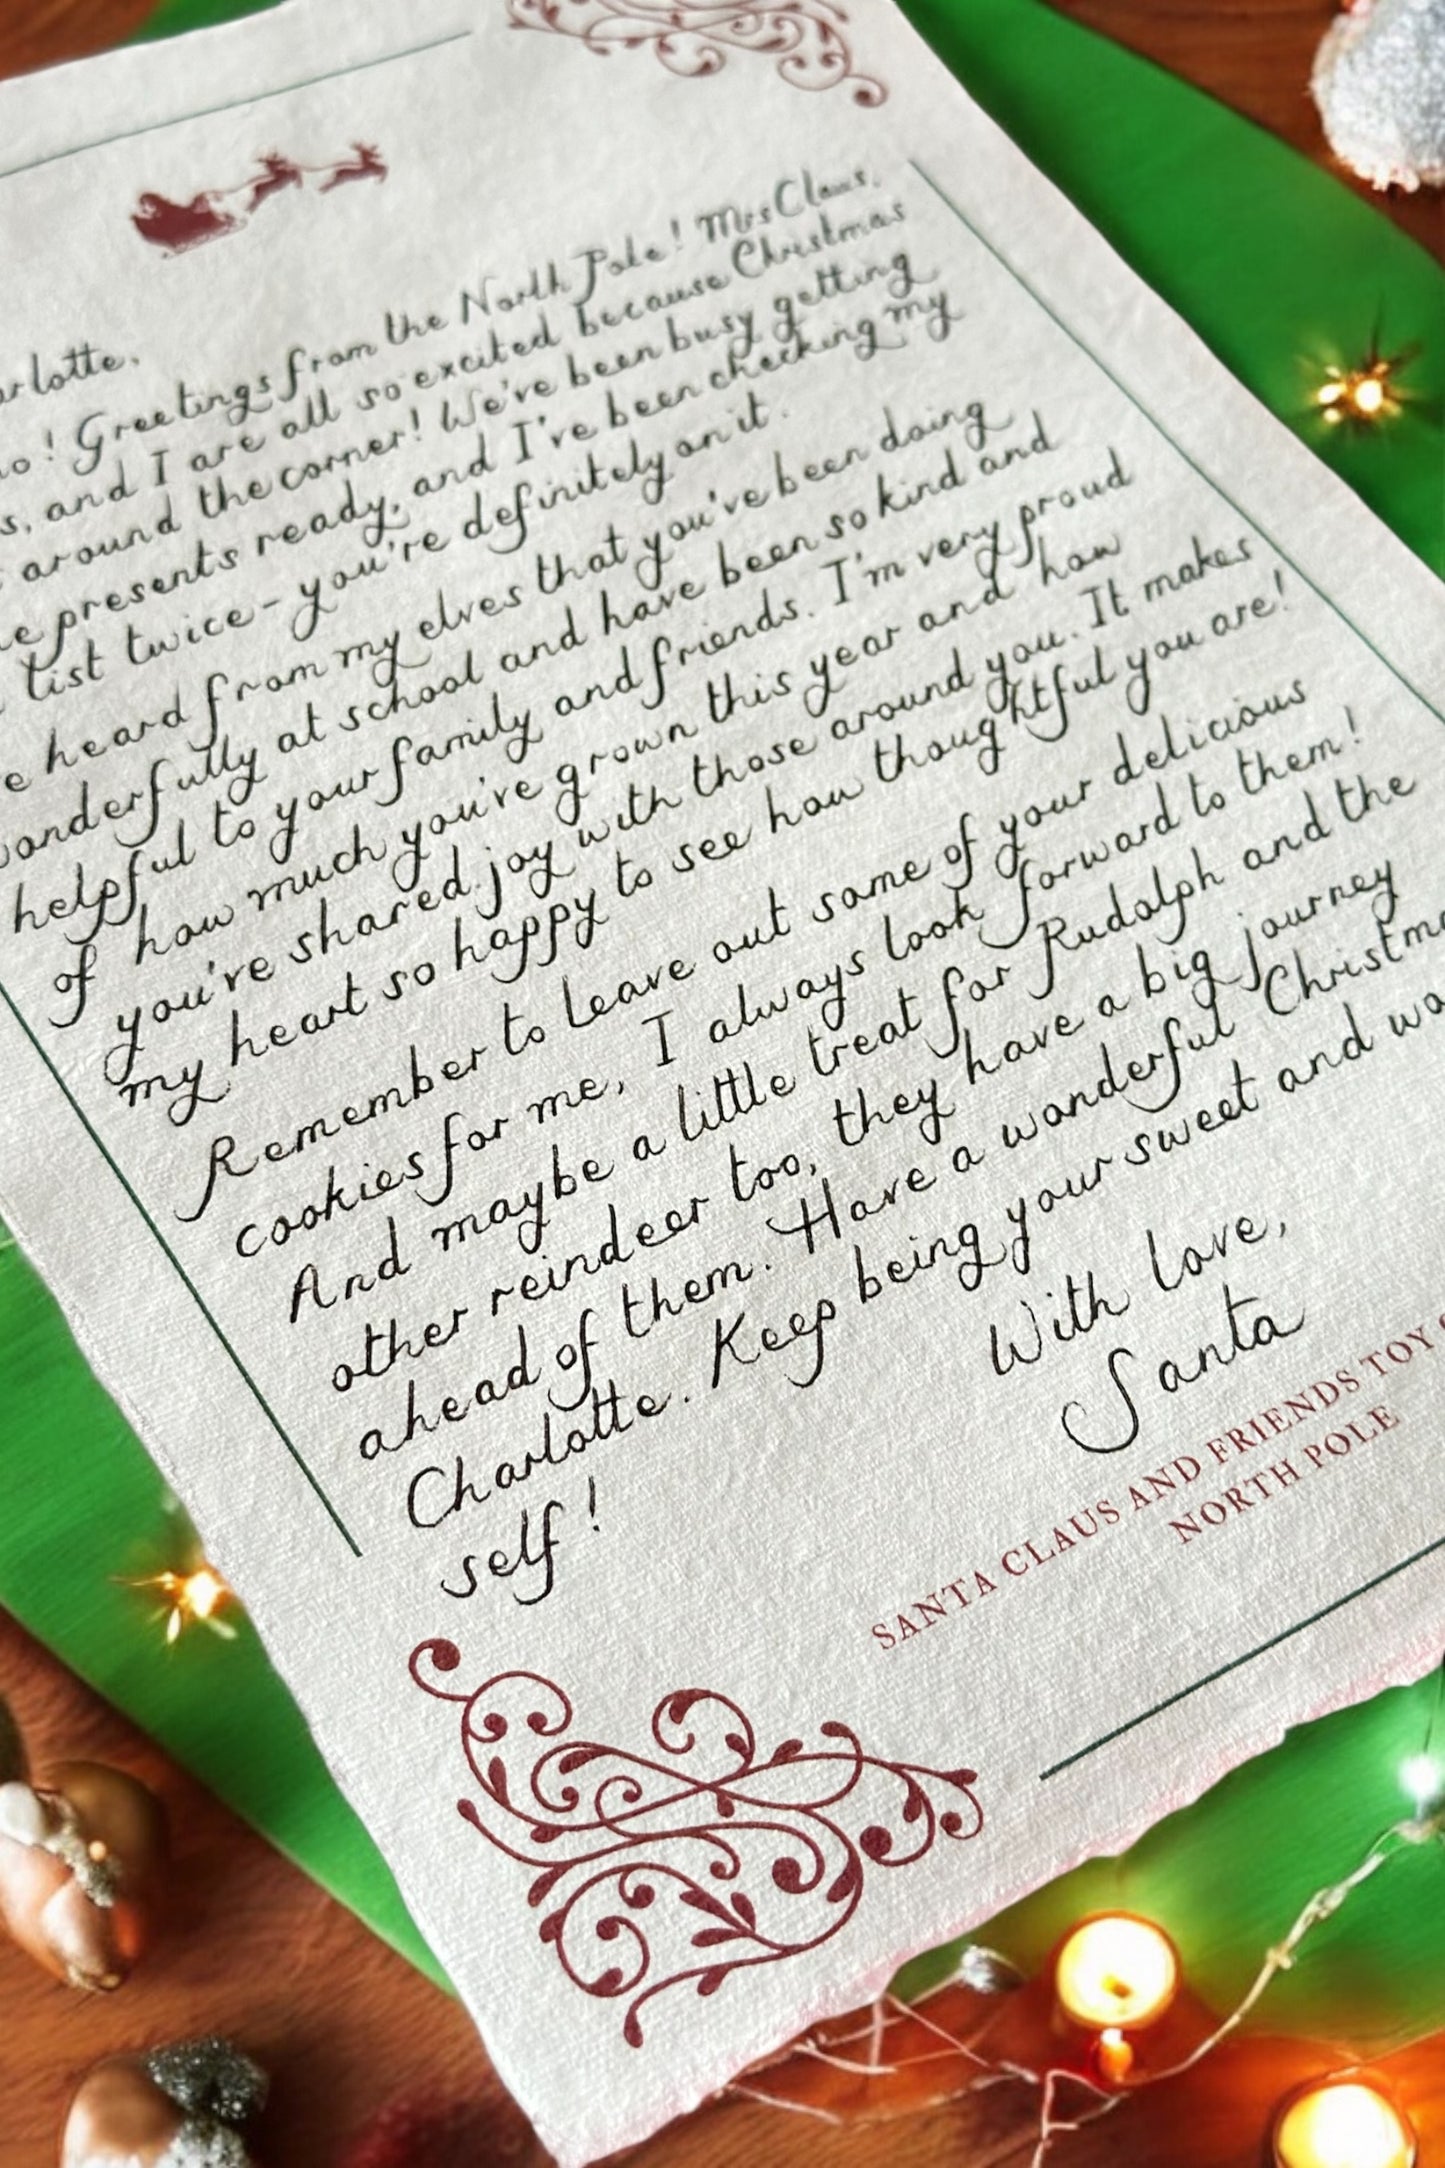 arlotte,
o! Greetings from the North Pole! Mrs Claus,
s, and I are all so excited because Christmas
around the corner! We've been busy getting
e presents ready, and I've been checking my
list twice - you're definitely on it.
e heard from my elves that you've been doing
wonderfully at school and have been so kind and
helpful to your family and friends. I'm very proud
of how much you've grown this year and how
you've shared joy with those around you. It makes
my heart so happy to see how thoughtful you are!
Remember to leave out some of your delicious
cookies for me, I always look forward to them!
And maybe a little treat for Rudolph and the
other reindeer too, they have a big journey
ahead of them. Have a wonderful Christma
Charlotte. Keep being your sweet and wo
self!
With love,
Santa
SANTA CLAUS AND FRIENDS TOY
NORTH POLE